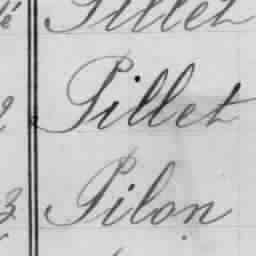 Pillet
Pillet
Pilon